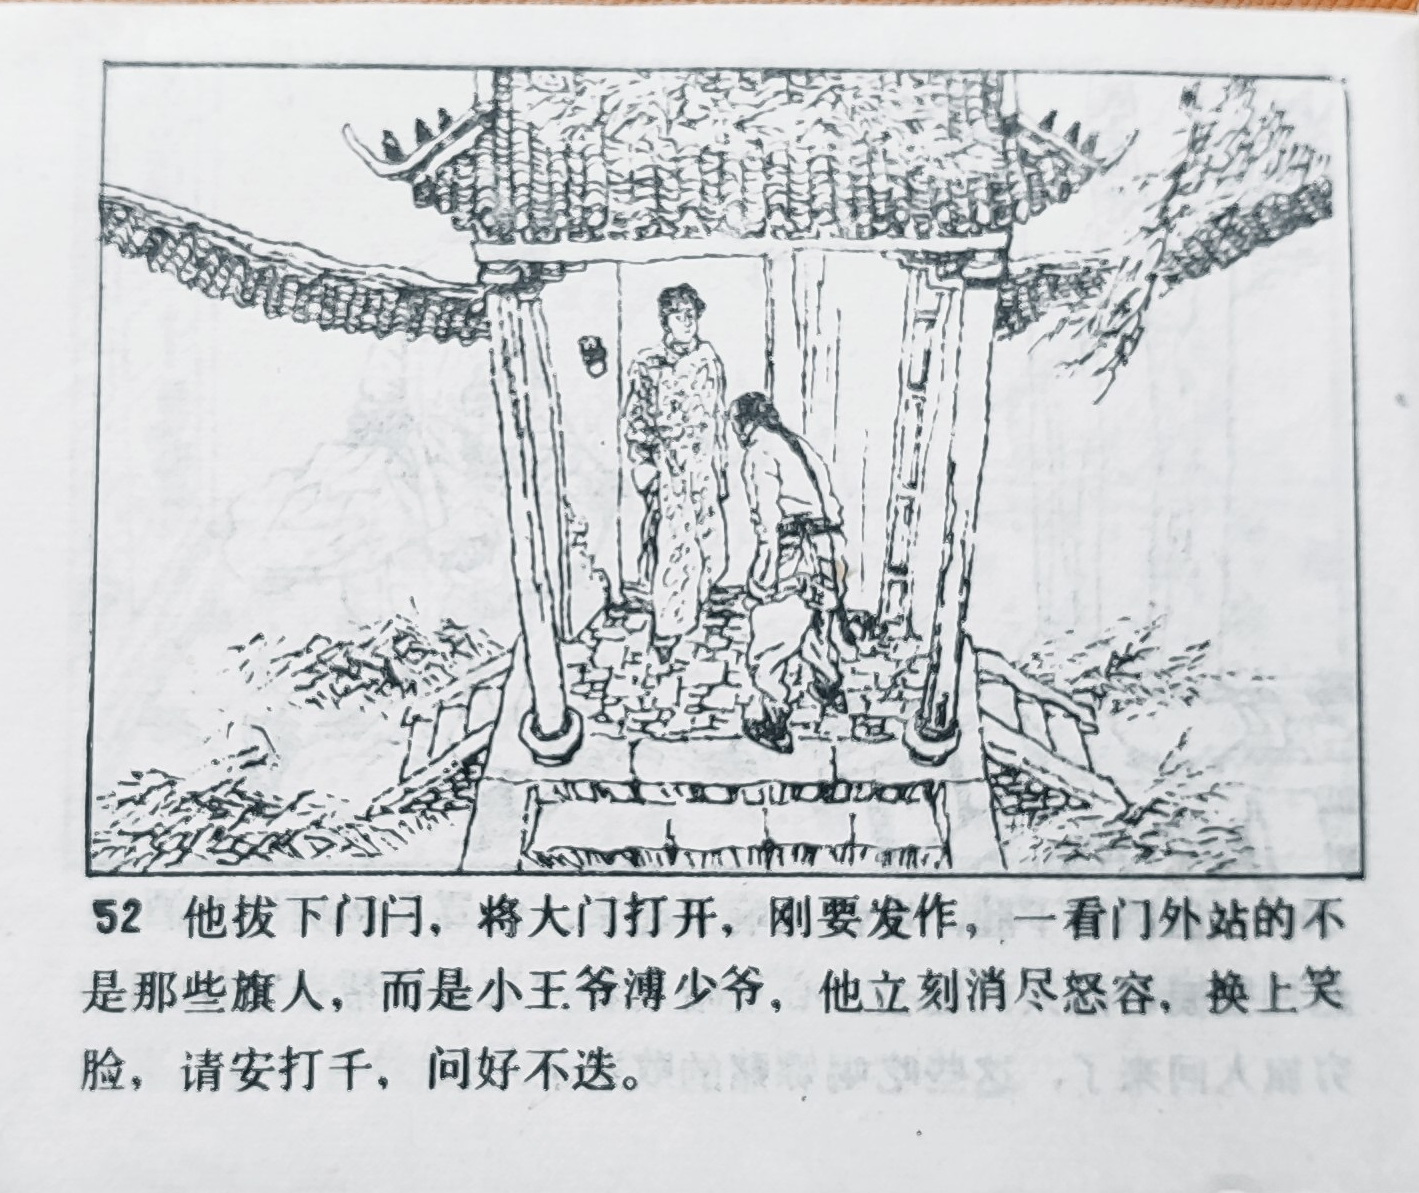 52 他拔下门闩，将大门打开，刚要发作，一看门外站的不
是那些旗人，而是小王爷溥少爷，他立刻消尽怒容，换上笑
脸，请安打千，问好不迭。